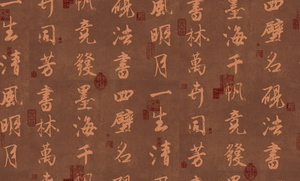 壁名硯法書
墨海千帆竟發
書林萬卉同芳
風明月一生清
硯法書四壁名
帆竟發墨海千
卉同芳書林萬
一生清風明月